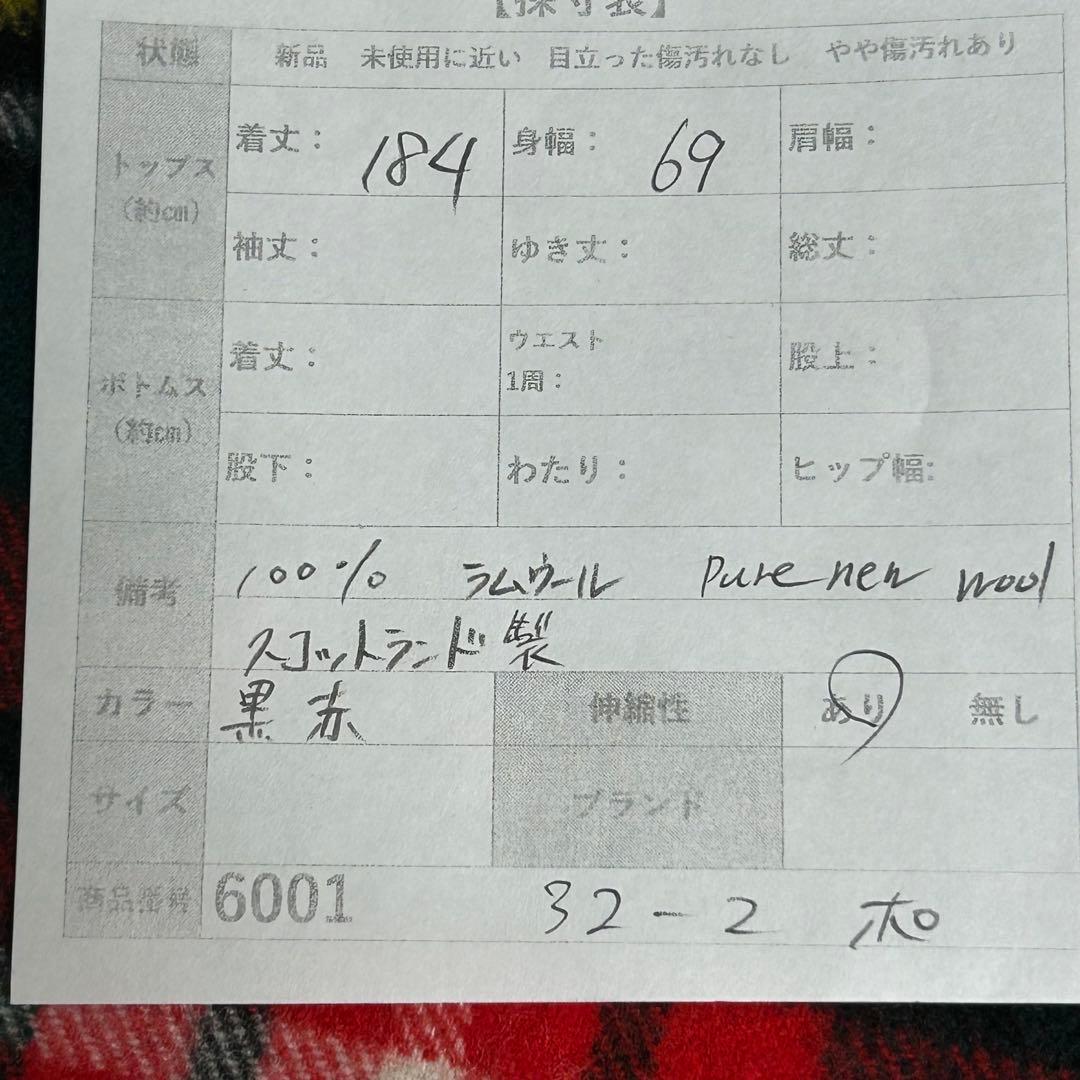 【採寸表】
状態 新品 未使用に近い 目立った傷汚れなし やや傷汚れあり
トップス（約cm） 着丈： 184 身幅： 69 肩幅：
袖丈： ゆき丈： 総丈：
ボトムス（約cm） 着丈： ウエスト1周： 股上：
股下： わたり： ヒップ幅:
備考 100% ラムウール Pure new wool
スコットランド製
カラー 黒 赤 伸縮性 あり 無し
サイズ ブランド
商品番号 6001 32-2 ポ